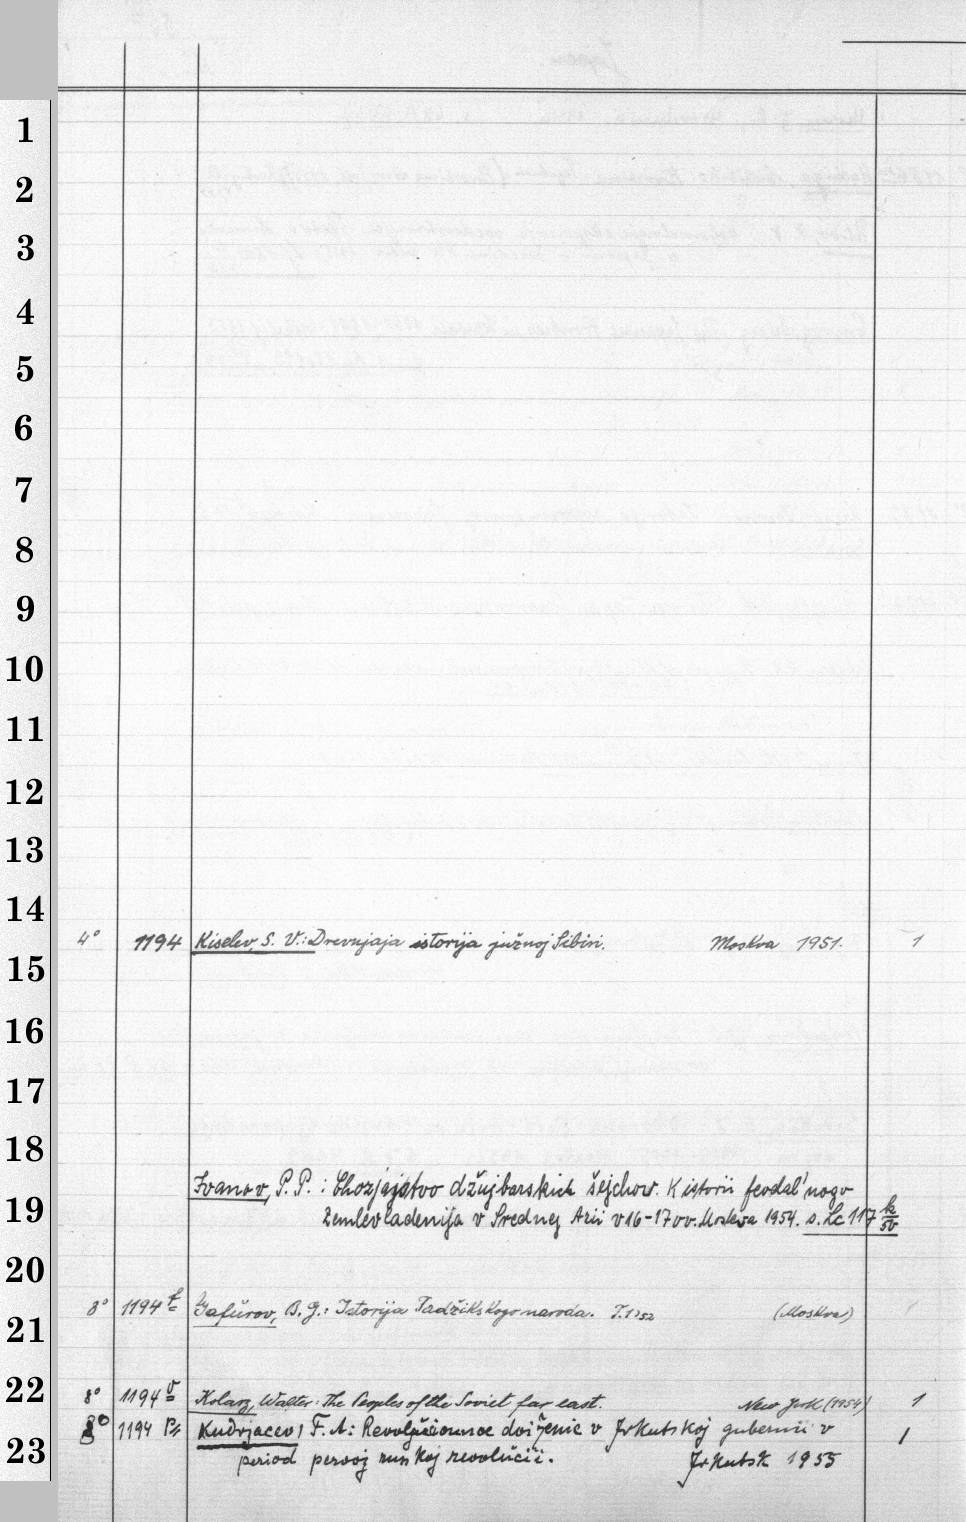 1
2
3
4
5
6
7
8
9
10
11
12
13
14
4° 1194 Kiselev, S. V.: Drevnjaja istorija južnoj Sibiri. Moskva 1951. 1
15
16
17
18
Ivanov, P. P.: Chozjajstvo džujbarskich šejchov. K istorii feodal'nogo
19
zemlevladenija v Srednej Azii v 16-17 vv. Moskva 1954. s. Lc 117 k/50
20
8° 1194 f Gafurov, B. G.: Istorija Tadžikskogo naroda. T. 1 1952 (Moskva) 1
21
22
8° 1194 v Kolarz, Walter: The Peoples of the Soviet far east. New York (1954) 1
8° 1194 Kudrjacev, F. A.: Revoljucionnoe dviženie v Irkutskoj gubernii v 1
23
period pervoj russkoj revoljucii. Irkutsk 1955